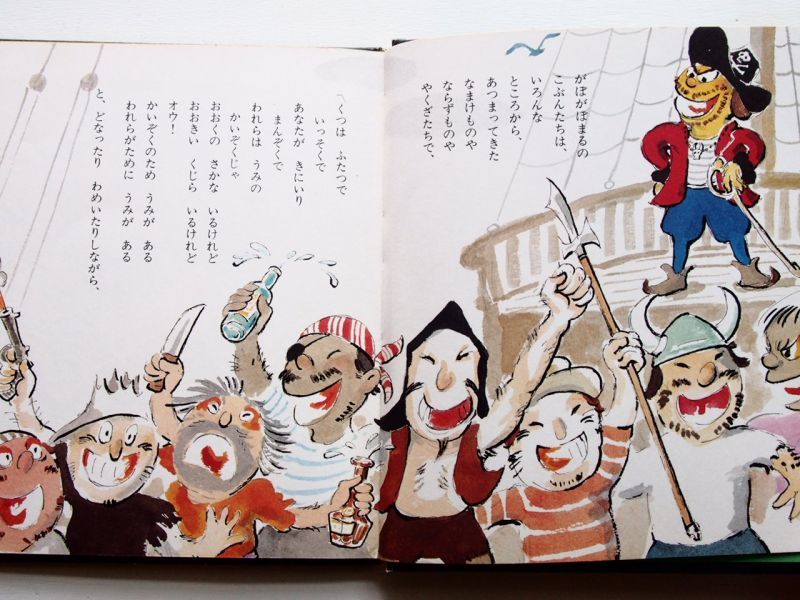 がぼがぼまるの
こぶんたちは、
いろんな
ところから、
あつまってきた
なまけものや
ならずものや
やくざたちで、
「くつは　ふたつで
いっそくで
あなたが　きにいり
まんぞくで
われらは　うみの
かいぞくじゃ
おおくの　さかな　いるけれど
おおきい　くじら　いるけれど
オウ！
かいぞくのため　うみが　ある
われらがために　うみが　ある
と、どなったり　わめいたりしながら、